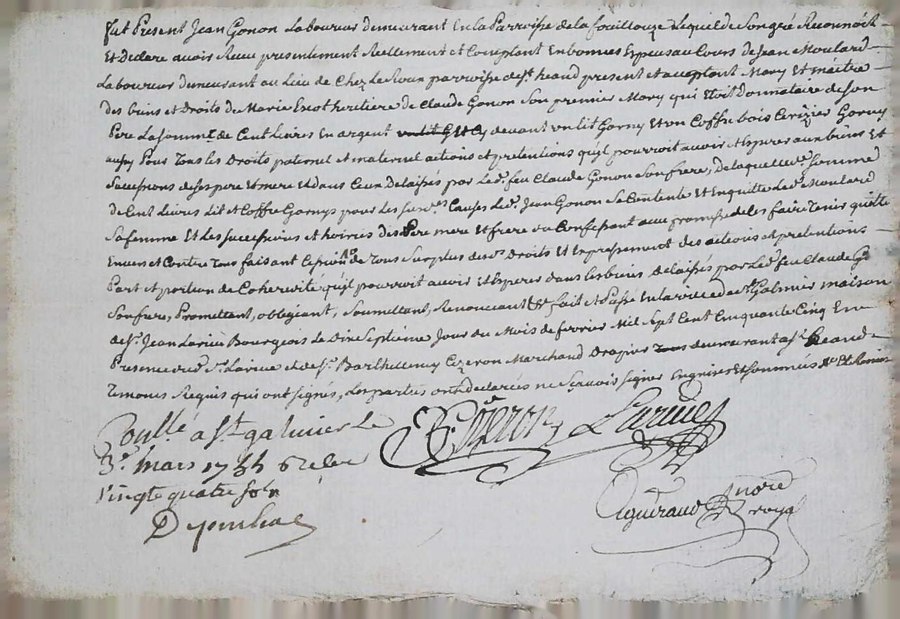 fut Present Jean Gonon Laboureur demeurant En la Parroisse de la fouillouze Lequel de Son gré Reconnoit
Et Declare avoir Receu presentement Reellement et Comptant En bonnes Especes au Cours de Jean Moulard
Laboureur demeurant au Lieu de Chez Le Roux parroisse de st. heand present et acceptant Mary Et maitre
des biens et Droits de Marie Escot heritiere de Claude Gonon Son premier Mary qui Etoit Donnataire de Son
Pere La Somme de Cent Livres En argent devant un lit Garny Et un Coffre bois Cerizier Garny
aussy Pour Tous Les Droits paternel et maternel actions et pretentions qu'il pourroit avoir et Esperer aux biens Et
Successions de ses pere et mere Et dans Ceux Delaissés par Led. feu Claude Gonon Son frere, De laquelle d. Somme
de Cent Livres Lit et Coffre Garnys pour Les Causes Led. Jean Gonon Sa Contente Et En quitte Led. Moulard
Sa femme Et Les Successions et hoiries des Pere mere et frere du Confessant avec promesse de Les faire Tenir quitte
Envers et Contre Tous faisant Cession de Tous Surplus des d. Droits Et Expressement des actions et pretentions
Part et portion de Coherevite qu'il pourroit avoir et Esperer dans Les biens delaissés par Led. feu Claude Go
Son frere, Promettant, obligeant, Soumettant, Renonceant &c. fait et Passé En la ville de st. Galmier maison
de Sr. Jean Larüe Bourgeois Le Dix Septieme Jour du Mois de fevrier Mil Sept Cent Cinquante Cinq En
Presence dud. Sr. Larüe et de Sr. Barthelemy Cizeron Marchand Drapier demeurant a st. heand
Temoins Requis qui ont signés, Les parties ont declarées ne Sçavoir signer Enquises Et Sommées
Conllé a St galmier le
3e. mars 1755
vingt quatre sols
B. Cizeron Larüe
Notre
royal